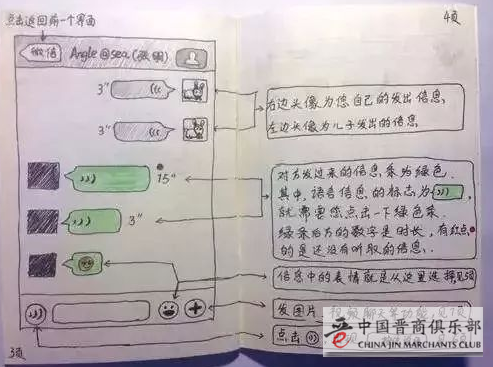 点击返回前一个界面
微信
Angle@sea(张明)
3"
3"
15"
3"
3页
4页
右边头像为您自己的发出信息,
左边头像为儿子发出的信息
对方发过来的信息,条为绿色.
其中,语音信息的标志为
就需要您点击一下绿色条.
绿条后方的数字是时长,有红点
的是还没有听取的信息.
信息中的表情就是从这里选择,见5页
发图片,视频聊天等功能,见7页
点击
晋 中国晋商俱乐部
CHINA JIN MARCHANTS CLUB